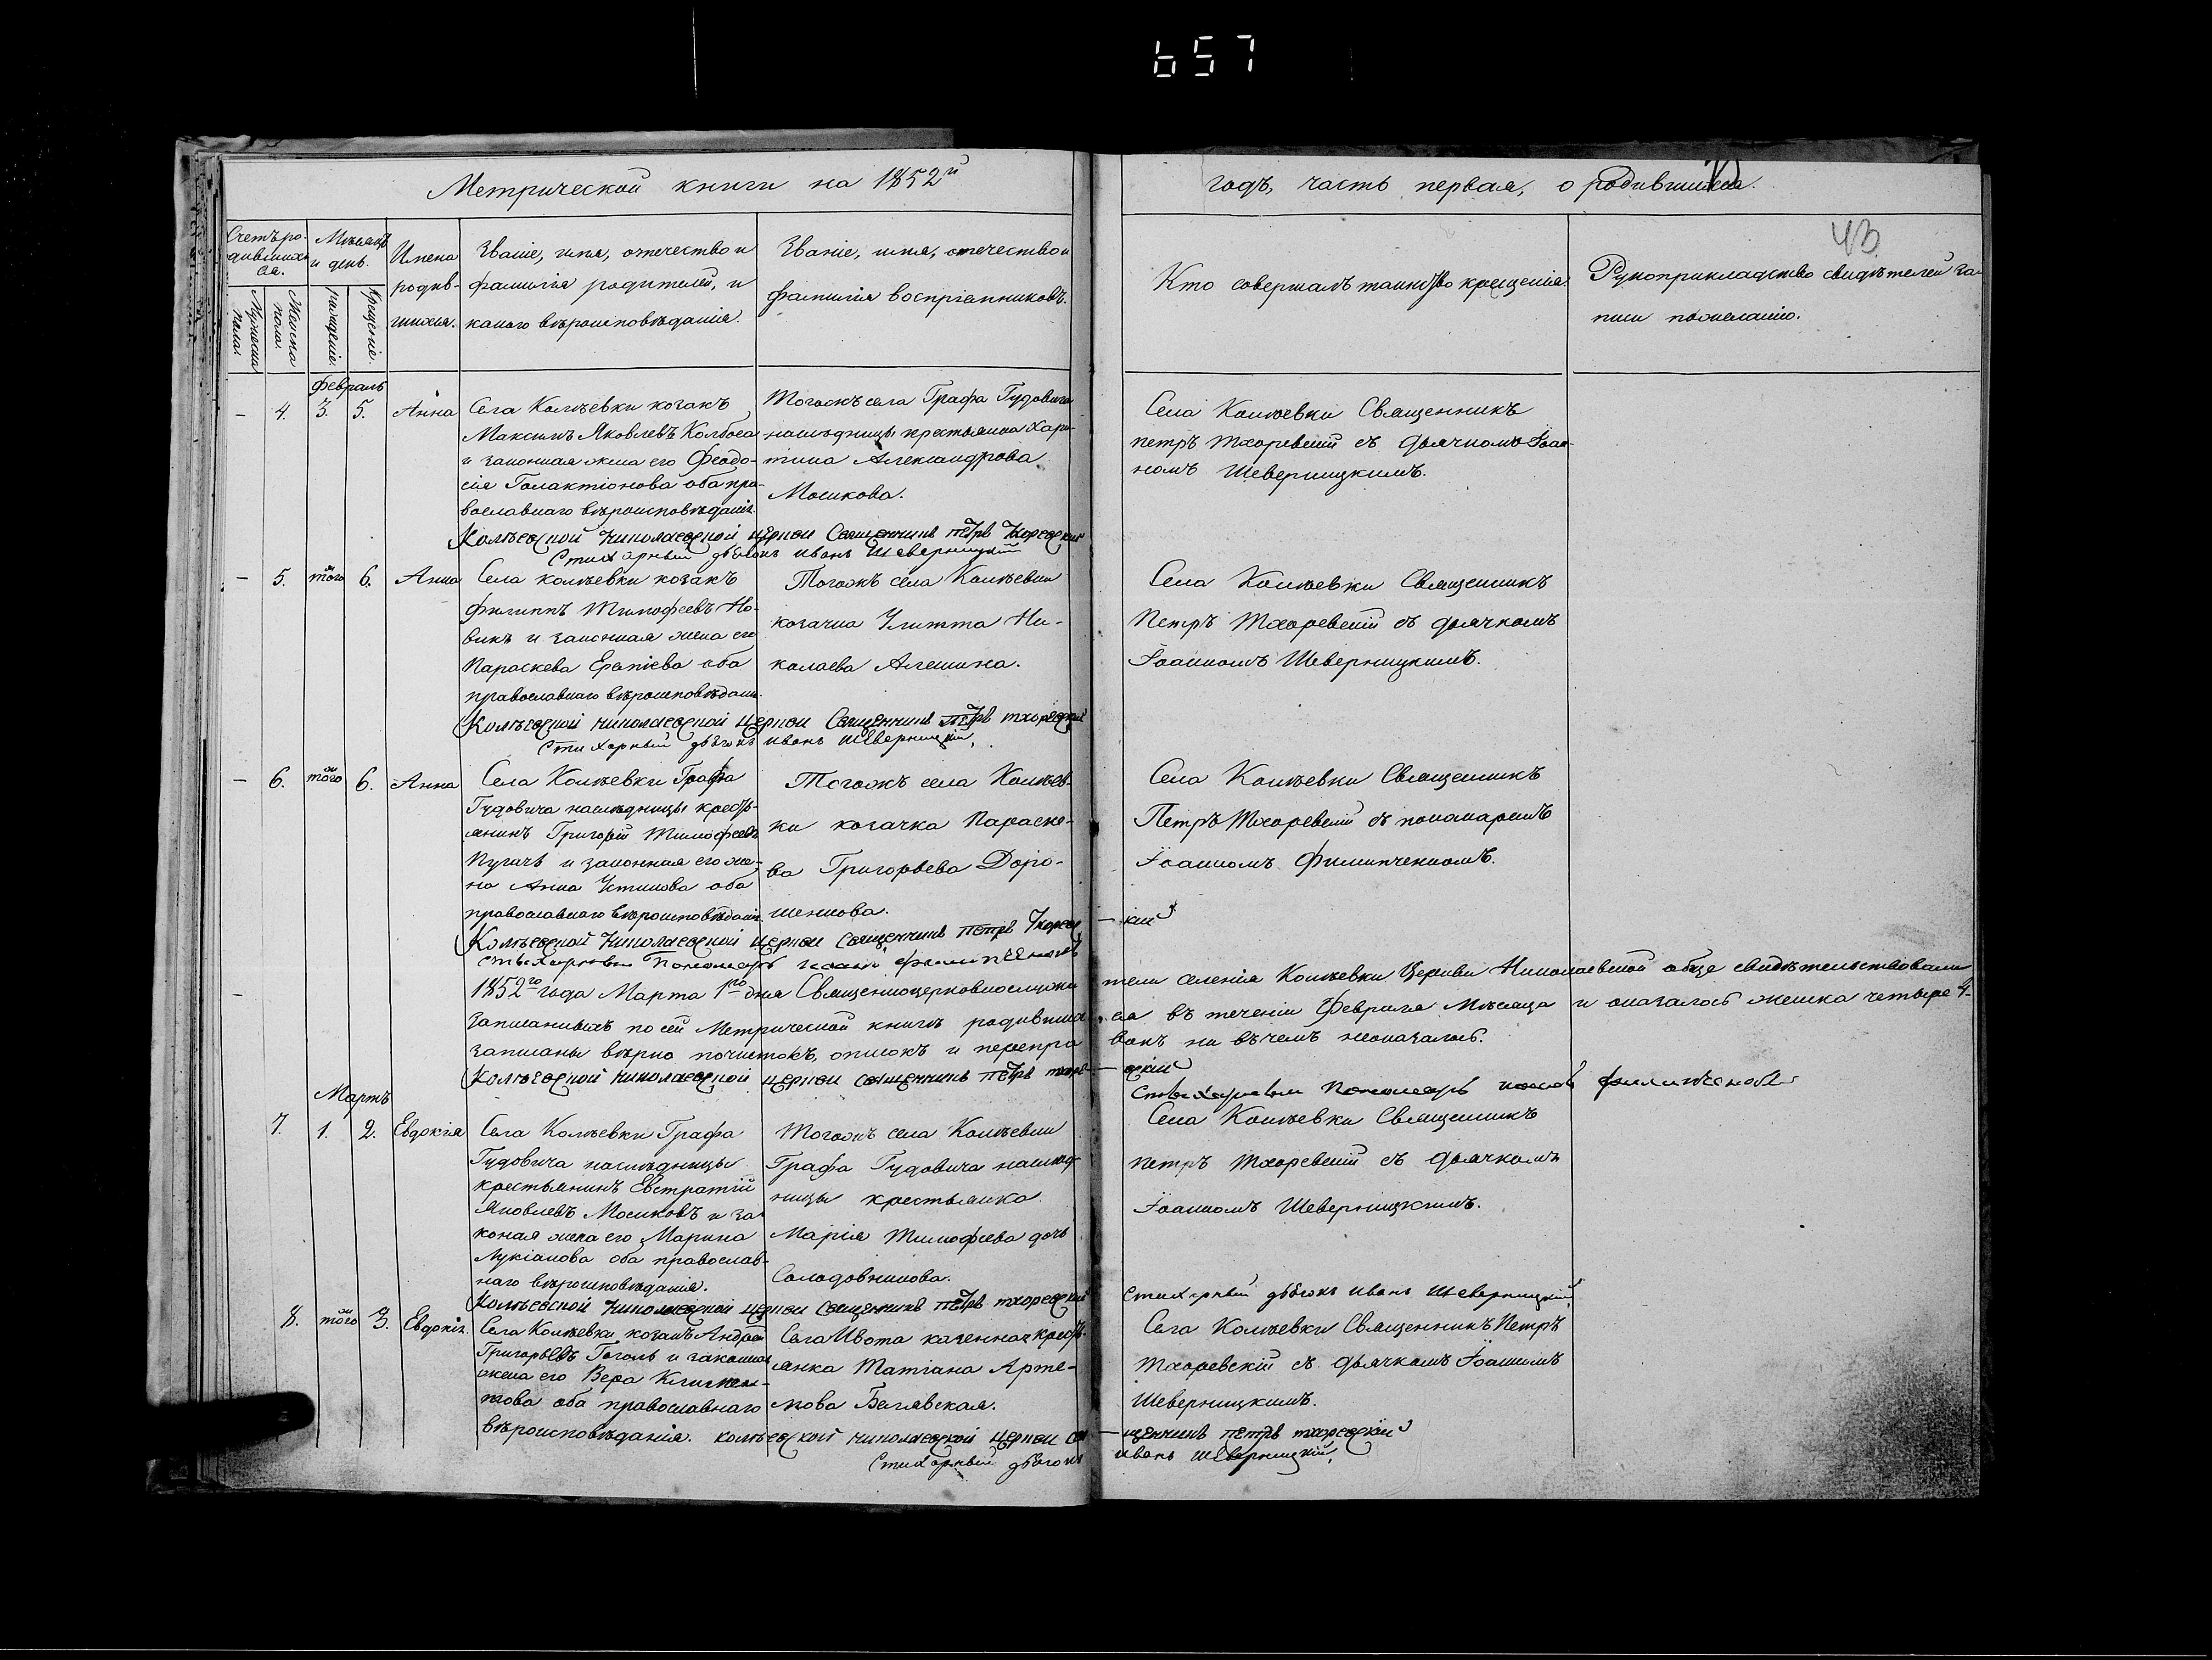 657
Метрической книги на 1852й
годъ, часть первая, о родившихся.
43
Счетъ ро-
дивших
ся.
Мужеска
пола.
Женска
пола.
Мѣсяцъ
и день.
рожденіе.
Крещеніе.
Имена
родив-
шихся.
Званіе, имя, отечество и
фамилія родителей, и
какого вѣроисповѣданія.
Званіе, имя, отечество и
фамилія воспріемниковъ.
Кто совершалъ таинство крещенія.
Рукоприкладство свидѣтелей за-
писи по желанію.
Февраль
– 4. 3. 5. Анна
Села Колѣевки козакъ
Максимъ Яковлевъ Колбоса
и законная жена его Феодо-
сія Галактіонова оба пра-
вославнаго вѣроисповѣданія.
Тогожъ села Графа Гудовича
наслѣдницы крестьянка Хари-
тина Александрова
Мосикова.
Села Колѣевки Священникъ
петръ Тхоревскій съ дьячкомъ Іоан-
номъ Шеверницкимъ.
Колѣевской Николаевской церкви Священникъ петръ Тхоревский
Стихарный дьячокъ иванъ Шеверницкий
– 5. того 6. Анна
Села Колѣевки козакъ
Филиппъ Тимофеевъ Но-
викъ и законная жена его
Параскева Ерапіева оба
православнаго вѣроисповѣдан.
Тогожъ села Колѣевки
козачка Улитта Ни-
колаева Алешина.
Села Колѣевки Священникъ
Петръ Тхоревскій съ дьячкомъ
Іоанномъ Шеверницкимъ.
Колѣевской николаевской церкви Священникъ петръ тхоревский
Стихарный дьячокъ иванъ Шеверницкій,
– 6. того 6. Анна
Села Колѣевки Графа
Гудовича наслѣдницы кресть-
янинъ Григорій Тимофеевъ
Пугачъ и законная его же-
на Анна Устинова оба
православнаго вѣроисповѣданія
Тогожъ села Колѣев-
ки козачка Параске-
ва Григорьева Доро-
шенкова.
Села Колѣевки Священникъ
Петръ Тхоревскій съ пономаремъ
Іоанномъ Филипченкомъ.
Колѣевской Николаевской церкви священникъ петръ Тхорев – кий
Стихарный Пономарь иоанъ филипченокъ
– 1852го года Марта 1го дня Священноцерковнослужи тели селенія Колѣевки Церкви Николаевской обще свидѣтельствовали
записанныхъ по сей Метрической книгѣ родивших ся въ теченіи Февраля Мѣсяца и оказалось женска четыре 4.
записаны вѣрно почистокъ, описокъ и перепра вокъ ни въ чемъ неоказалось.
Колѣевской николаевской церкви священникъ петръ тхорев – ский
Стихарный Пономарь иоанъ филипченокъ
Мартъ
7. 1. 2. Евдокія
Села Колѣевки Графа
Гудовича наслѣдницы
крестьянинъ Евстратій
Яковлевъ Мосиковъ и за-
коная жена его Марина
Лукіанова оба православ-
наго вѣроисповѣданія.
Тогожъ села Колѣевки
Графа Гудовича наслѣд
ницы крестьянка
Марія Тимофеева дочь
Солодовникова.
Села Колѣевки Священникъ
петръ Тхоревскій съ дьячкомъ
Іоанномъ Шеверницкимъ.
Колѣевской Николаевской церкви Священникъ петръ тхоревский
Стихарный дьячокъ иванъ Шеверницкий,
8. того 3. Евдокія.
Села Колѣевки козакъ Андрей
Григорьевъ Гоголь и законная
жена его Вера Климен-
това оба православнаго
вѣроисповѣданія.
Села Ивота казенная кресть-
янка Татіана Арте-
мова Багявская.
Села Колѣевки Священникъ Петръ
Тхоревскій съ дьячкомъ Іоанномъ
Шеверницкимъ.
колѣевской николаевской церкви свя – щенникъ петръ тхоревский
Стихарный дьячокъ иванъ Шеверницкій,